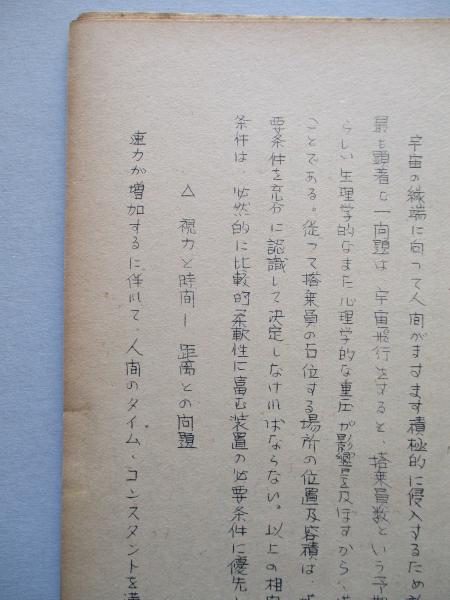 宇宙の縁端に向って人間がますます積極的に侵入するため
最も顕著な一问題は、宇宙飛行をすると、搭乗員数という予期
らしい生理学的なまた心理学的な重圧が影響を及ぼすから、
ことである。従って搭乗員の占位する場所の位置及容積は、
要条件を充分に認識して決定しなければならない。以上の相
条件は、必然的に比較的柔軟性に富む装置の必要条件に優先
△ 視力と時間ー距離との问題
速力が増加するに伴れて、人間のタイム、コンスタントを